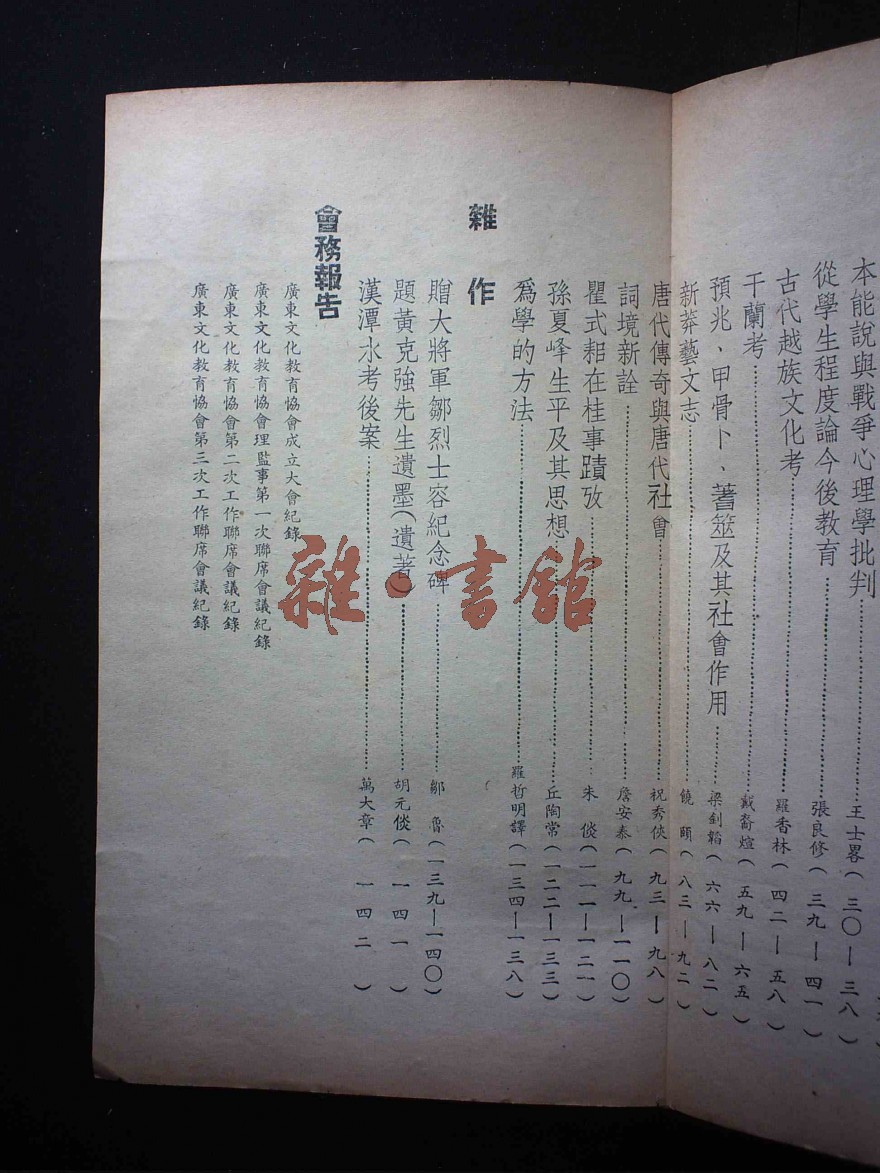 本能說與戰爭心理學批判…………王士畧(三〇—三八)
從學生程度論今後教育…………張良修(三九—四一)
古代越族文化考…………羅香林(四二—五八)
干蘭考…………戴裔煊(五九—六五)
預兆、甲骨卜、蓍筮及其社會作用…………梁釗韜(六六—八二)
新莽藝文志…………饒 頤(八三—九二)
唐代傳奇與唐代社會…………祝秀俠(九三—九八)
詞境新詮…………詹安泰(九九—一一〇)
瞿式耜在桂事蹟攷…………朱 倓(一一一—一二一)
孫夏峰生平及其思想…………丘陶常(一二二—一三三)
爲學的方法…………羅哲明譯(一三四—一三八)
雜 作
贈大將軍鄒烈士容紀念碑…………鄒 魯(一三九—一四〇)
題黃克強先生遺墨(遺著)…………胡元倓(一四一)
漢潭水考後案…………萬大章(一四二)
會務報告
廣東文化教育協會成立大會紀錄
廣東文化教育協會理監事第一次聯席會議紀錄
廣東文化教育協會第二次工作聯席會議紀錄
廣東文化教育協會第三次工作聯席會議紀錄
雜·書館